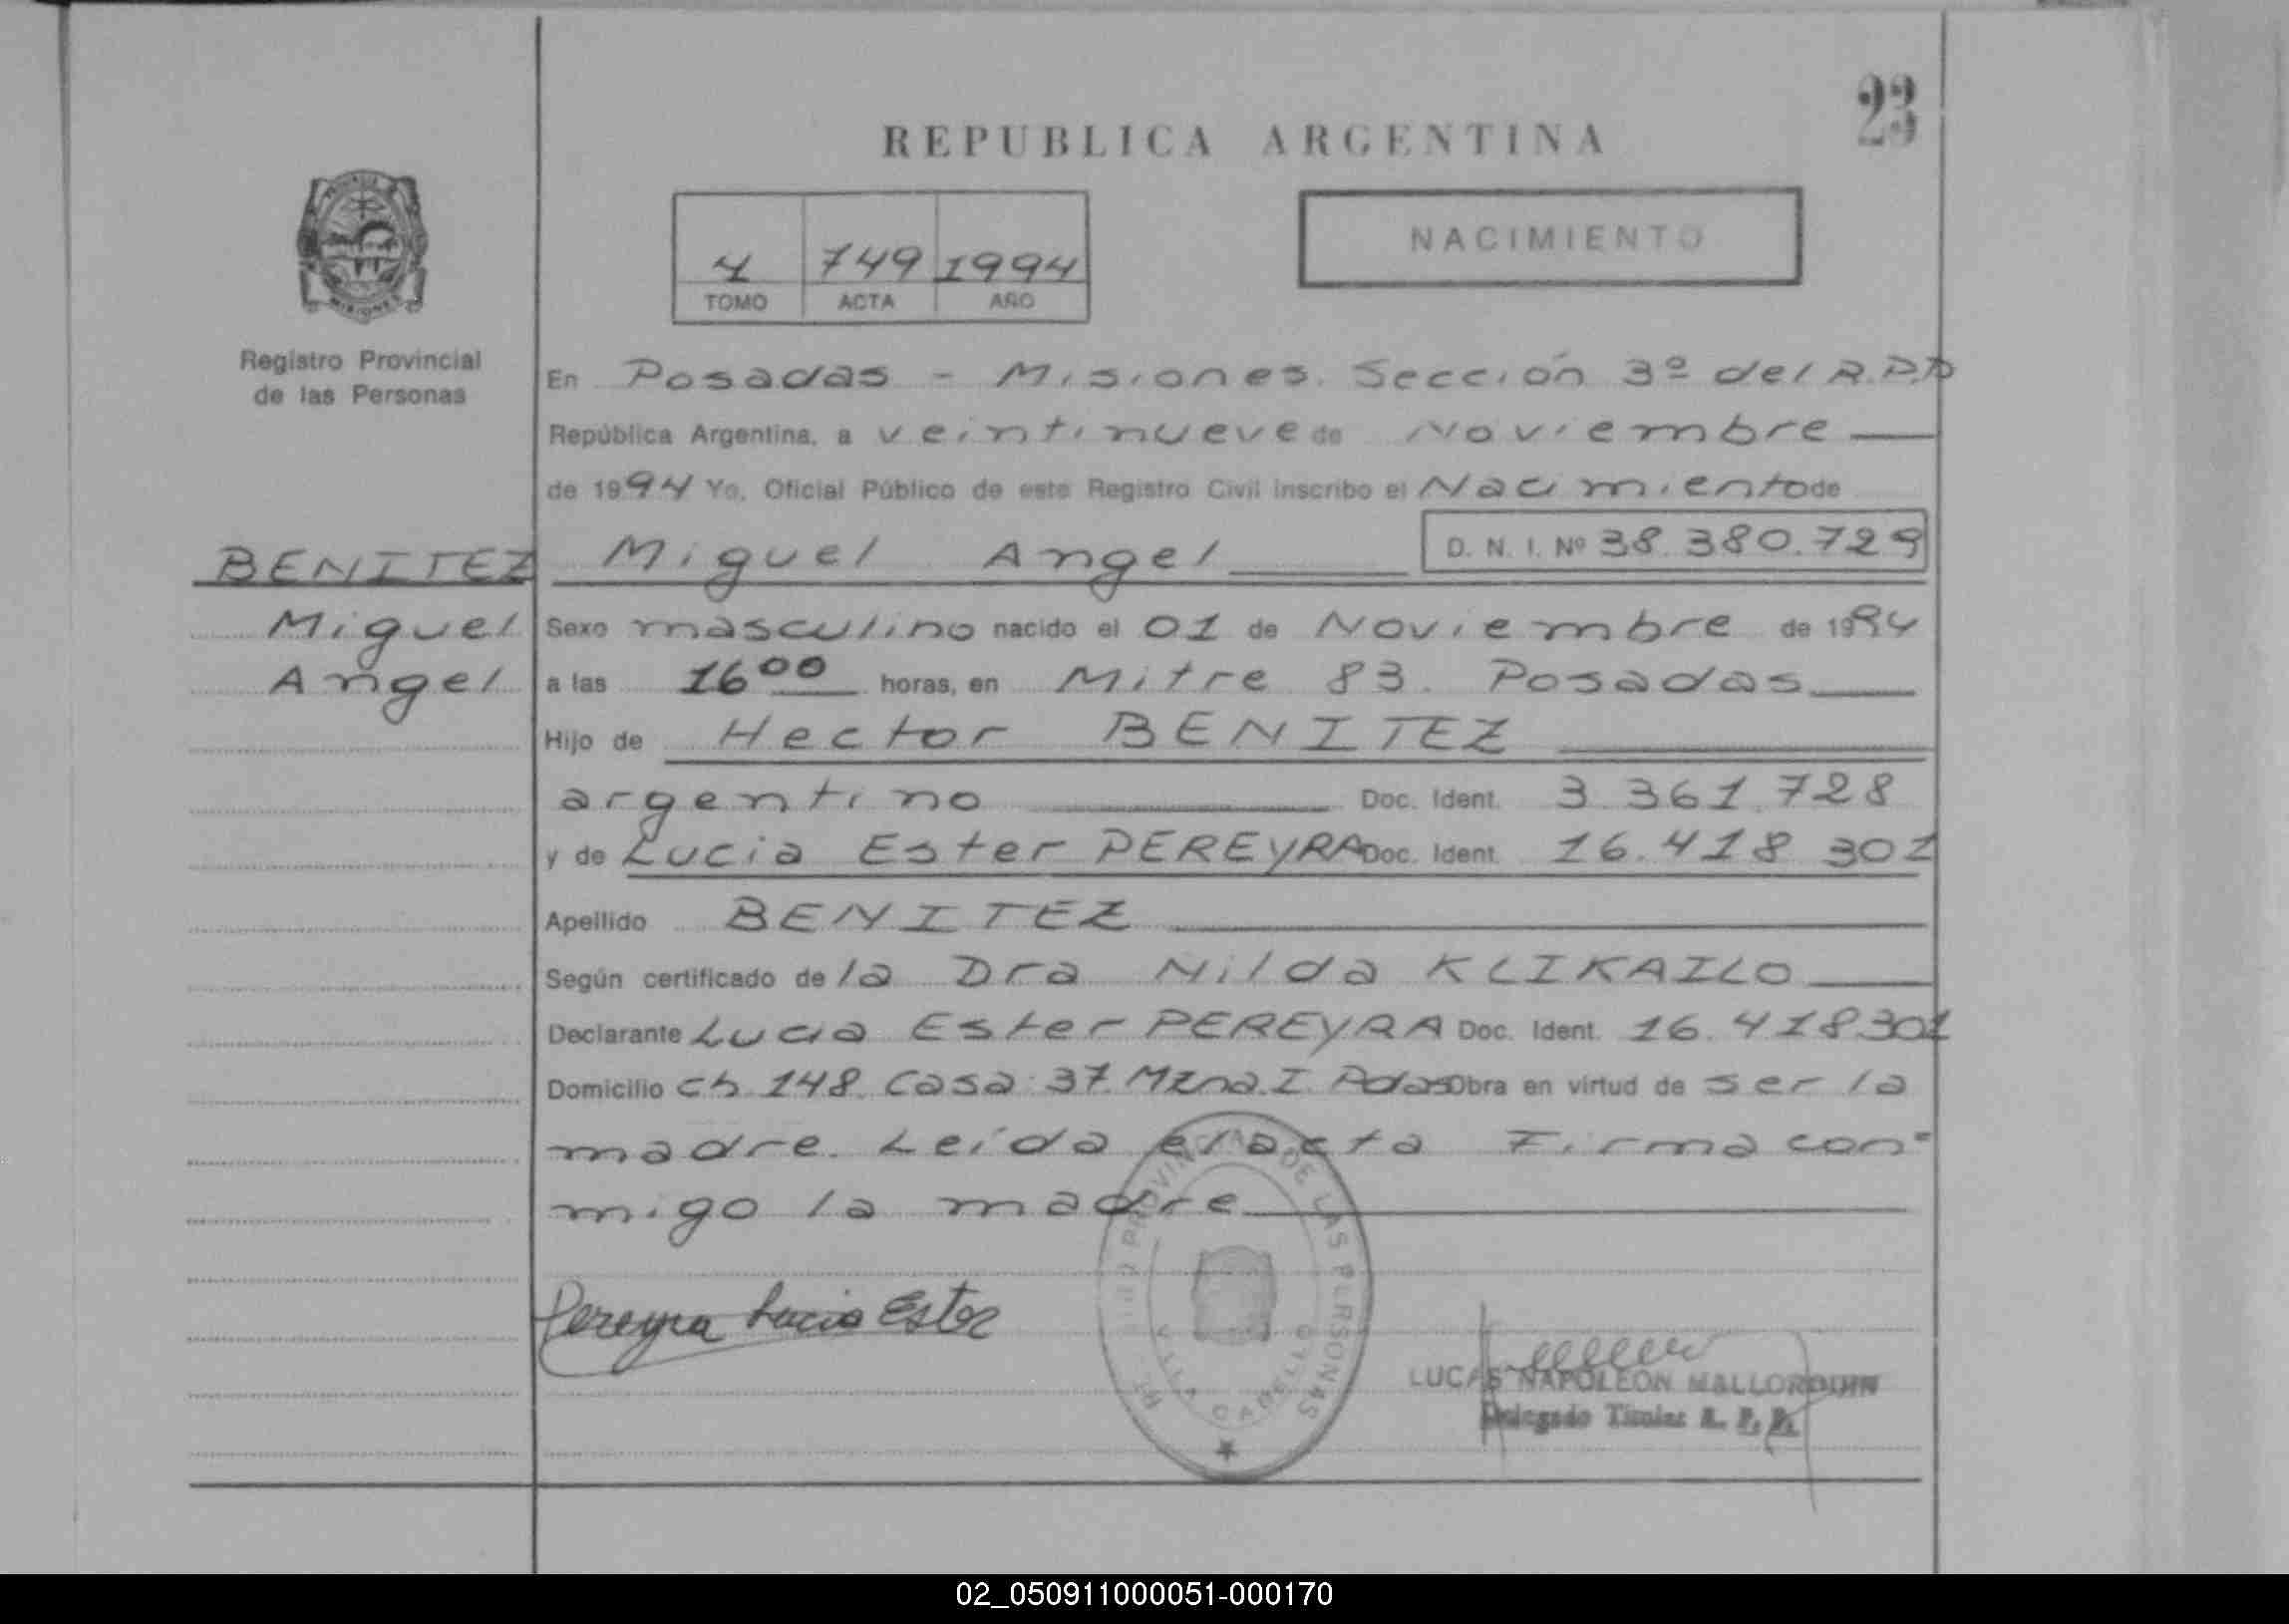 23
REPUBLICA ARGENTINA
4 749 1994
TOMO ACTA AÑO
NACIMIENTO
Registro Provincial
de las Personas
En Posadas - Misiones. Sección 3º del R.P.P
República Argentina, a veintinueve de Noviembre
de 1994 Yo, Oficial Público de este Registro Civil inscribo el Nacimiento de
BENITEZ Miguel Angel D. N. I. Nº 38.380.729
Miguel
Angel
Sexo masculino nacido el 01 de Noviembre de 1994
a las 16 00 horas, en Mitre 83. Posadas
Hijo de Hector BENITEZ
argentino Doc. Ident. 3.361.728
y de Lucia Ester PEREYRA Doc. Ident. 16.418 301
Apellido BENITEZ
Según certificado de la Dra Nilda KLIKAILO
Declarante Lucia Ester PEREYRA Doc. Ident. 16.418301
Domicilio Ch 148. Casa 37. Mzna. I. Pdas Obra en virtud de ser la
madre. Leída el acta Firma con=
migo la madre
PROVIN DE LAS PERSONAS
VILLA CABELLO
Pereyra Lucia Ester
LUCAS NAPOLEON
Delegado Titular R. P. P.
02_050911000051-000170